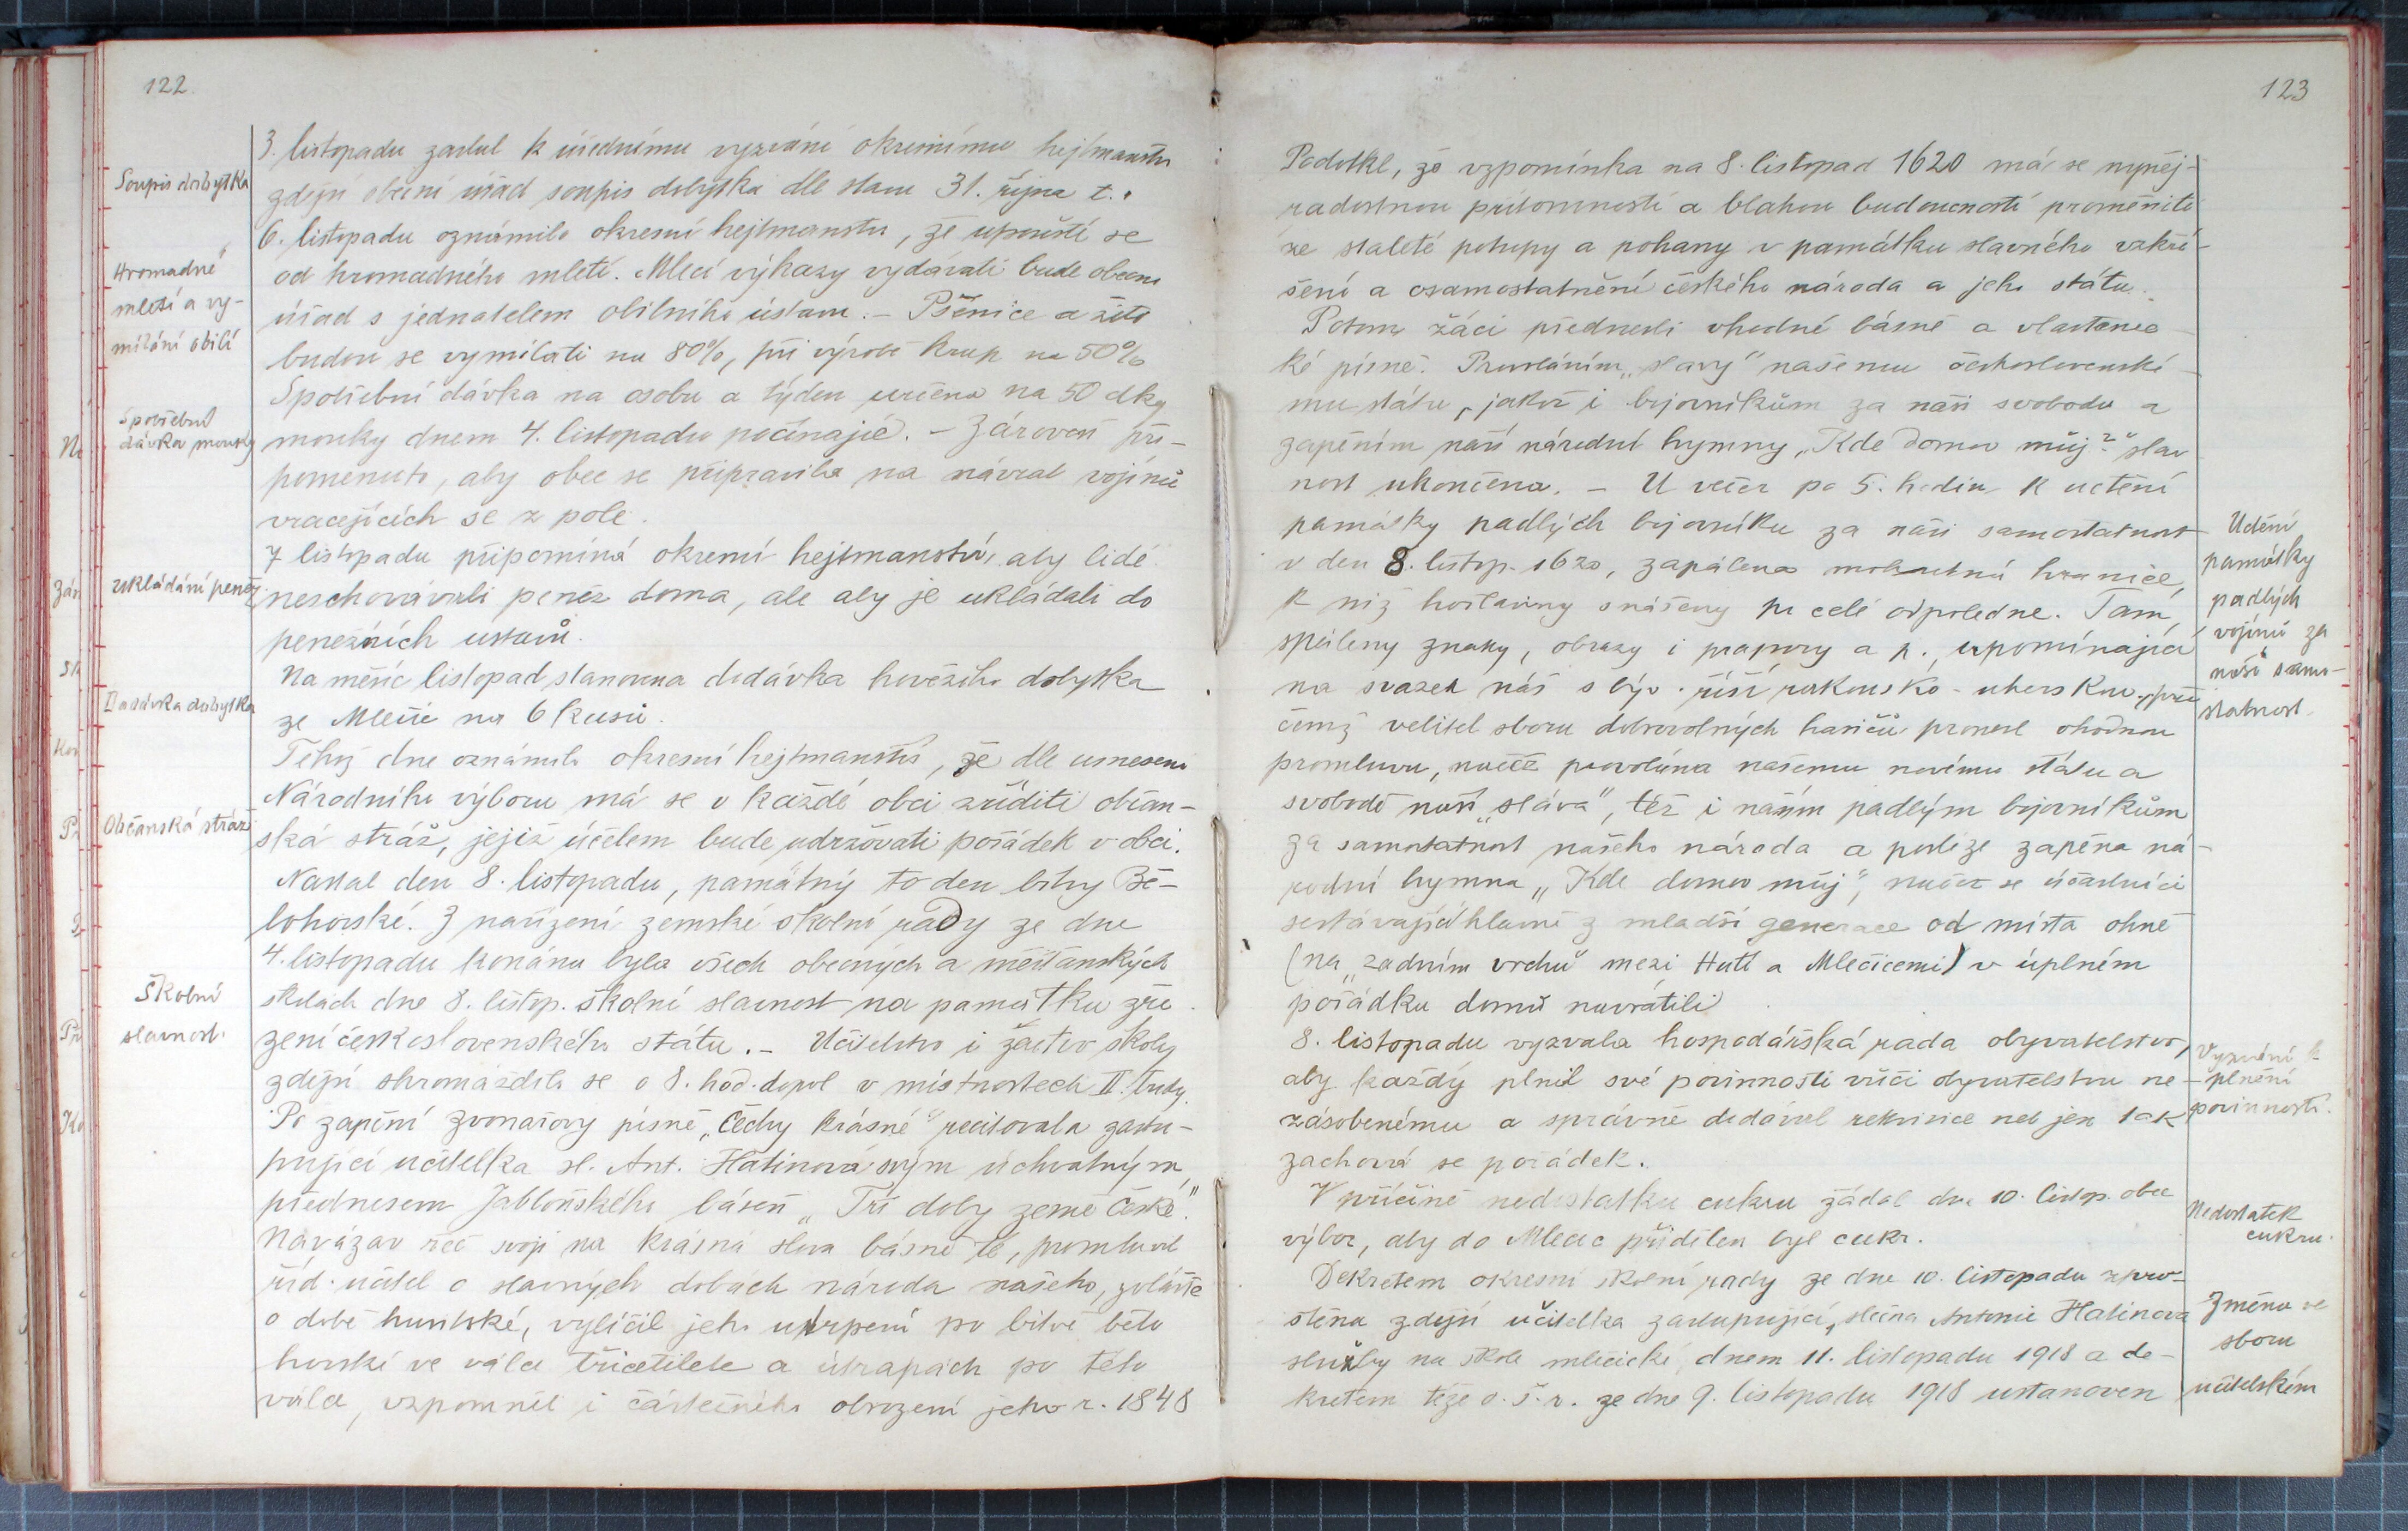 122
Soupis dobytka
Hromadné
mletí a vy-
mílání obilí
Spotřební
dávka mouky
Ukládání peněz
Dodávka dobytka
Občanská stráž
Školní
slavnost.
3. listopadu zaslal k úřednímu vyzvání okresnímu hejtmanstvu
zdejší obecní úřad soupis dobytka dle stavu 31. října t.r.
6. listopadu oznámilo okresní hejtmanství, že upouští se
od hromadného mletí. Mlecí výkazy vydávati bude obecní
úřad s jednatelem obilního ústavu. – Pšenice a žito
budou se vymílati na 80%, při výrobě krup na 50%
Spotřební dávka na osobu a týden určena na 50 dkg
mouky dnem 4. listopadu počínajíc. – Zároveň při-
pomenuto, aby obec se připravila na návrat vojínů
vracejících se z pole.
7 listopadu připomíná okresní hejtmanství, aby lidé
neschovávali peněz doma, ale aby je ukládali do
peněžních ustavů.
Na měsíc listopad stanovena dodávka hovězího dobytka
ze Mlečic na 6 kusů.
Téhož dne oznámilo okresní hejtmanství, že dle usnesení
Národního výboru má se v každé obci zříditi občan-
ská stráž, jejíž účelem bude udržovati pořádek v obci.
Nastal den 8. listopadu, památný to den bitvy Bě-
lohorské. Z nařízení zemské školní rady ze dne
4. listopadu konána byla všech obecných a měšťanských
školách dne 8. listop. školní slavnost na památku zří
zení československého státu. – Učitelstvo i žactvo školy
zdejší shromáždilo se o 8. hod. dopol v místnostech II. třídy.
Po zapění zvonařovy písně „Čechy krásné" recitovala zastu-
pující učitelka sl. Ant. Hatinová svým úchvatným
přednesem Jablonského báseň „Tři doby země české".
Navázav řeč svoji na krásná slova básně té, promluvil
říd. učitel o slavných dobách národa našeho, zvláště
o době husitské, vylíčil jeho utrpení po bitvě bělo
horské ve válce třicetileté a útrapách po této
válce, vzpomněl i částečného obrození jeho r. 1848
123
Podotkl, že vzpomínka na 8. listopad 1620 má se nyněj-
radostnou přítomností a blahou budoucností proměniti
ze staleté potupy a pohany v památku slavného vzkří-
šení a osamostatnění českého národa a jeho státu.
Potom žáci přednesli vhodné básně a vlastenec
ké písně. Provoláním „slávy" našemu československé-
mu státu, jakož i bojovníkům za naši svobodu a
zapěním naší národní hymny „Kde domov můj?" slav
nost ukončena. – U večer po 5. hodin k uctění
památky padlých bojovníku za naši samostatnost
v den 8. listop. 1620, zapálena mohutná hranice,
k níž hořlaviny snášeny po celé odpoledne. Tam
spáleny znaky, obrazy i prapory a p., upomínající
na svazek náš s býv. říší rakousko-uherskou, při
čemž velitel sboru dobrovolných hasičů pronesl vhodnou
promluvu, načež provolána našemu novému státu a
svobodě naší „sláva", též i našim padlým bojovníkům
za samostatnost našeho národa a posléze zapěna ná-
rodní hymna „Kde domov můj", načež se účastníci
sestávající hlavně z mladší generace od místa ohně
(na „zadním vrchu" mezi Hutí a Mlečicemi) v úplném
pořádku domů navrátili
8. listopadu vyzvala hospodářská rada obyvatelstvo,
aby každý plnil své povinnosti vůči obyvatelstvu ne-
zásobenému a správně dodával rekvisice neb jen tak
zachová se pořádek.
V příčině nedostatku cukru žádal dne 10. listop. obec
výbor, aby do Mlečic přidělen byl cukr.
Dekretem okresní školní rady ze dne 10. listopadu zpro-
štěna zdejší učitelka zastupující, slečna Antonie Hatinova
služby na škole mlečické, dnem 11. listopadu 1918 a de-
kretem téže o. š. r. ze dne 9. listopadu 1918 ustanoven
Uctění
památky
padlých
vojínů za
naši samo-
statnost.
Vyzvání k
plnění
povinnosti.
Nedostatek
cukru.
Změna ve
sboru
učitelském